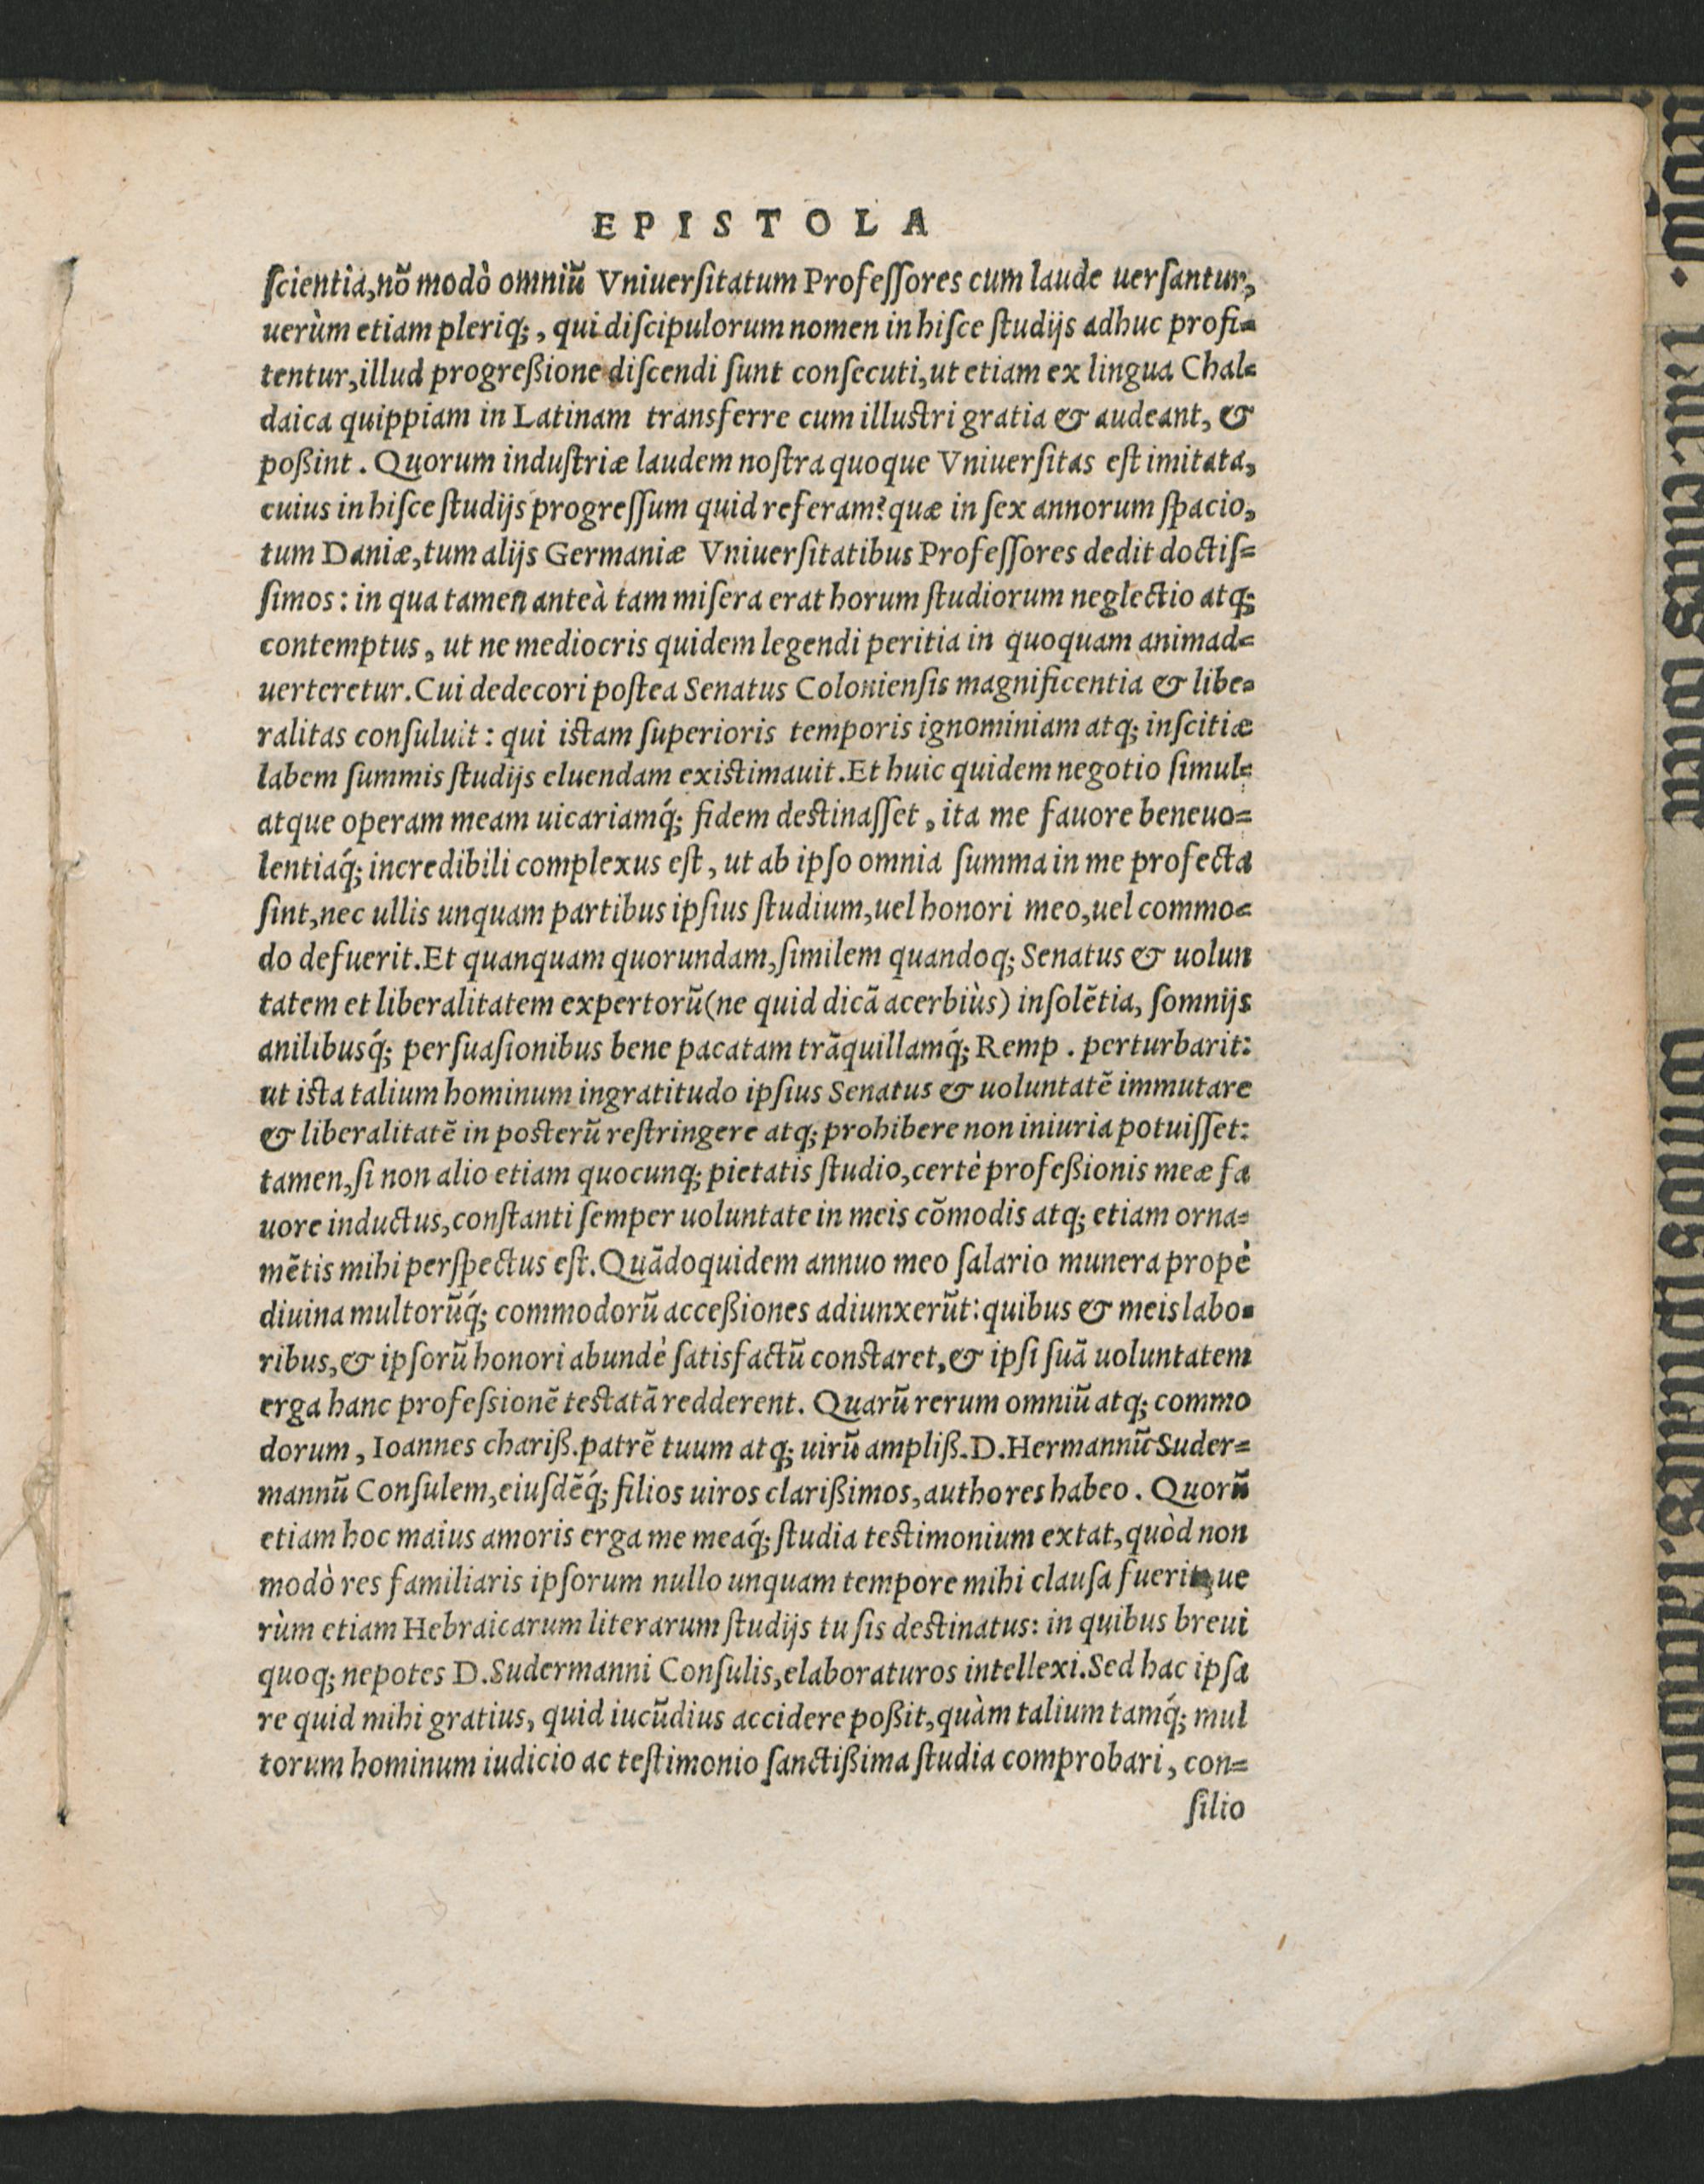 EPISTOLA
ſcientia, nõ modò omniũ Vniuerſitatum Profeſſores cum laude uerſantur,
uerùm etiam pleriq;, qui diſcipulorum nomen in hiſce ſtudijs adhuc profi=
tentur, illud progreßione diſcendi ſunt conſecuti, ut etiam ex lingua Chal=
daica quippiam in Latinam transferre cum illuſtri gratia & audeant, &
poßint. Quorum induſtriæ laudem noſtra quoque Vniuerſitas eſt imitata,
cuius in hiſce ſtudijs progreſſum quid referam? quæ in ſex annorum ſpacio,
tum Daniæ, tum alijs Germaniæ Vniuerſitatibus Profeſſores dedit doctiſ=
ſimos: in qua tamen anteà tam miſera erat horum ſtudiorum neglectio atq;
contemptus, ut ne mediocris quidem legendi peritia in quoquam animad=
uerteretur. Cui dedecori poſtea Senatus Colonienſis magnificentia & libe=
ralitas conſuluit: qui iſtam ſuperioris temporis ignominiam atq; inſcitiæ
labem ſummis ſtudijs eluendam exiſtimauit. Et huic quidem negotio ſimul=
atque operam meam uicariamq́; fidem deſtinaſſet, ita me fauore beneuo=
lentiaq́; incredibili complexus eſt, ut ab ipſo omnia ſumma in me profecta
ſint, nec ullis unquam partibus ipſius ſtudium, uel honori meo, uel commo=
do defuerit. Et quanquam quorundam, ſimilem quandoq; Senatus & uolun
tatem et liberalitatem expertorũ (ne quid dicã acerbiùs) inſolẽtia, ſomnijs
anilibusq́; perſuaſionibus bene pacatam trãquillamq́; Remp. perturbarit:
ut iſta talium hominum ingratitudo ipſius Senatus & uoluntatẽ immutare
& liberalitatẽ in poſterũ reſtringere atq; prohibere non iniuria potuiſſet:
tamen, ſi non alio etiam quocunq; pietatis ſtudio, certè profeßionis meæ fa
uore inductus, conſtanti ſemper uoluntate in meis cõmodis atq; etiam orna=
mẽtis mihi perſpectus eſt. Quãdoquidem annuo meo ſalario munera propè
diuina multorũq́; commodorũ acceßiones adiunxerũt: quibus & meis labo=
ribus, & ipſorũ honori abundè ſatisfactũ conſtaret, & ipſi ſuã uoluntatem
erga hanc profeſsionẽ teſtatã redderent. Quarũ rerum omniũ atq; commo
dorum, Ioannes chariß. patrẽ tuum atq; uirũ ampliß. D. Hermannũ Suder=
mannũ Conſulem, eiuſdẽq́; filios uiros clarißimos, authores habeo. Quorũ
etiam hoc maius amoris erga me meaq́; ſtudia teſtimonium extat, quòd non
modò res familiaris ipſorum nullo unquam tempore mihi clauſa fuerit, ue
rùm etiam Hebraicarum literarum ſtudijs tu ſis deſtinatus: in quibus breui
quoq; nepotes D. Sudermanni Conſulis, elaboraturos intellexi. Sed hac ipſa
re quid mihi gratius, quid iucũdius accidere poßit, quàm talium tamq́; mul
torum hominum iudicio ac teſtimonio ſanctißima ſtudia comprobari, con=
ſilio